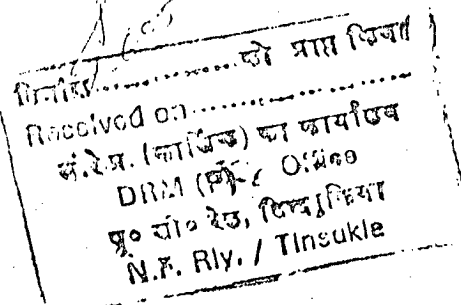 दिनांक.................को प्राप्त किया
Received on.....................
मं.रे.प्र. (कार्मिक) का कार्यालय
DRM (P)'s Office
पू० सी० रेल, तिनसुकिया
N.F. Rly. / Tinsukia